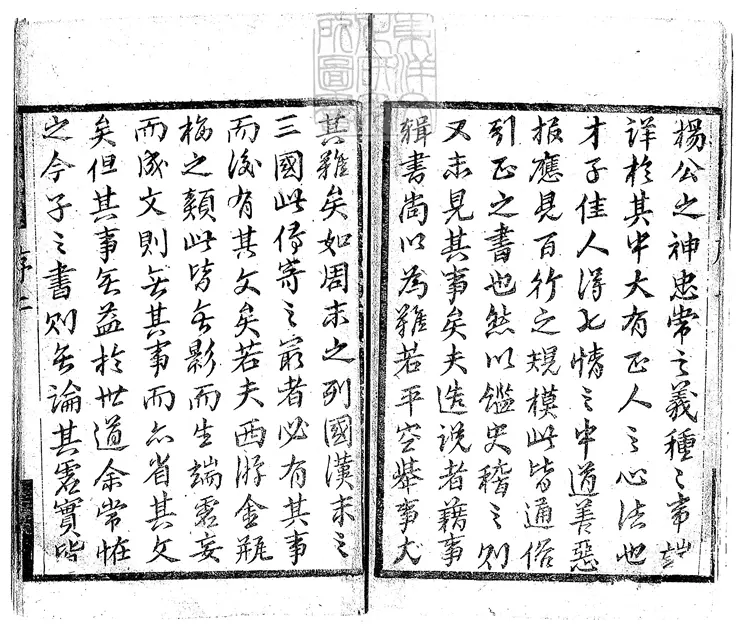 楊公之神忠常之義種之事詳
詳於其中大有正人之心法也
才子佳人得七情之中道善惡
報應見百行之規模此皆通俗
引正之書也然以鑑史稽之則
又未見其事矣夫造說者藉事
緝書尚以為難若平空舉事尤
其難矣如周末之列國漢末之
三國此傳寄之最者必有其事
而後有其文矣若夫西游金瓶
梅之類此皆無影而生端虛妄
而成文則無其事而亦省其文
矣但其事無益於世道余常怪
之今子之書則無論其虛實皆
序二